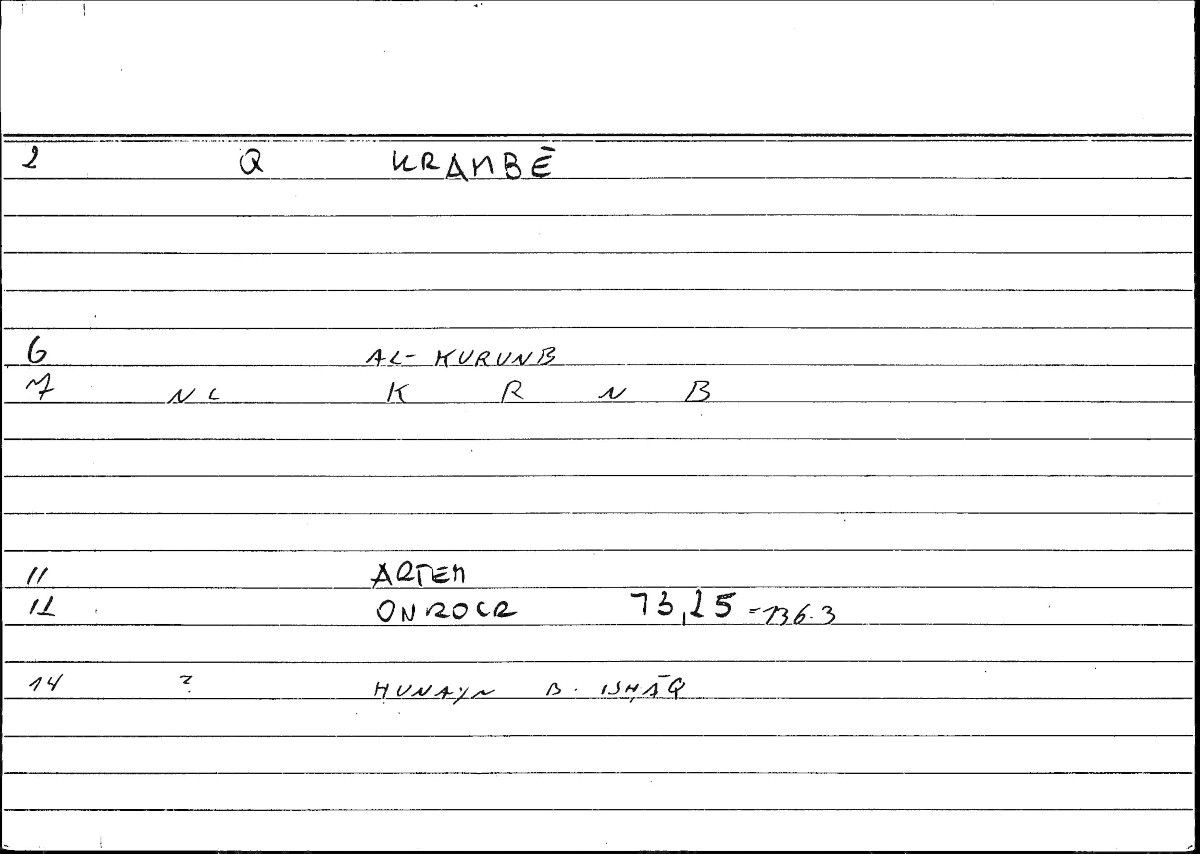 2 Q KRAMBĒ
6 AL-KURUNB
7 NL K R N B
11 ARTEM
12 ONROCR 73,25 = 136.3
14 ? ḤUNAYN B. ISḤĀQ